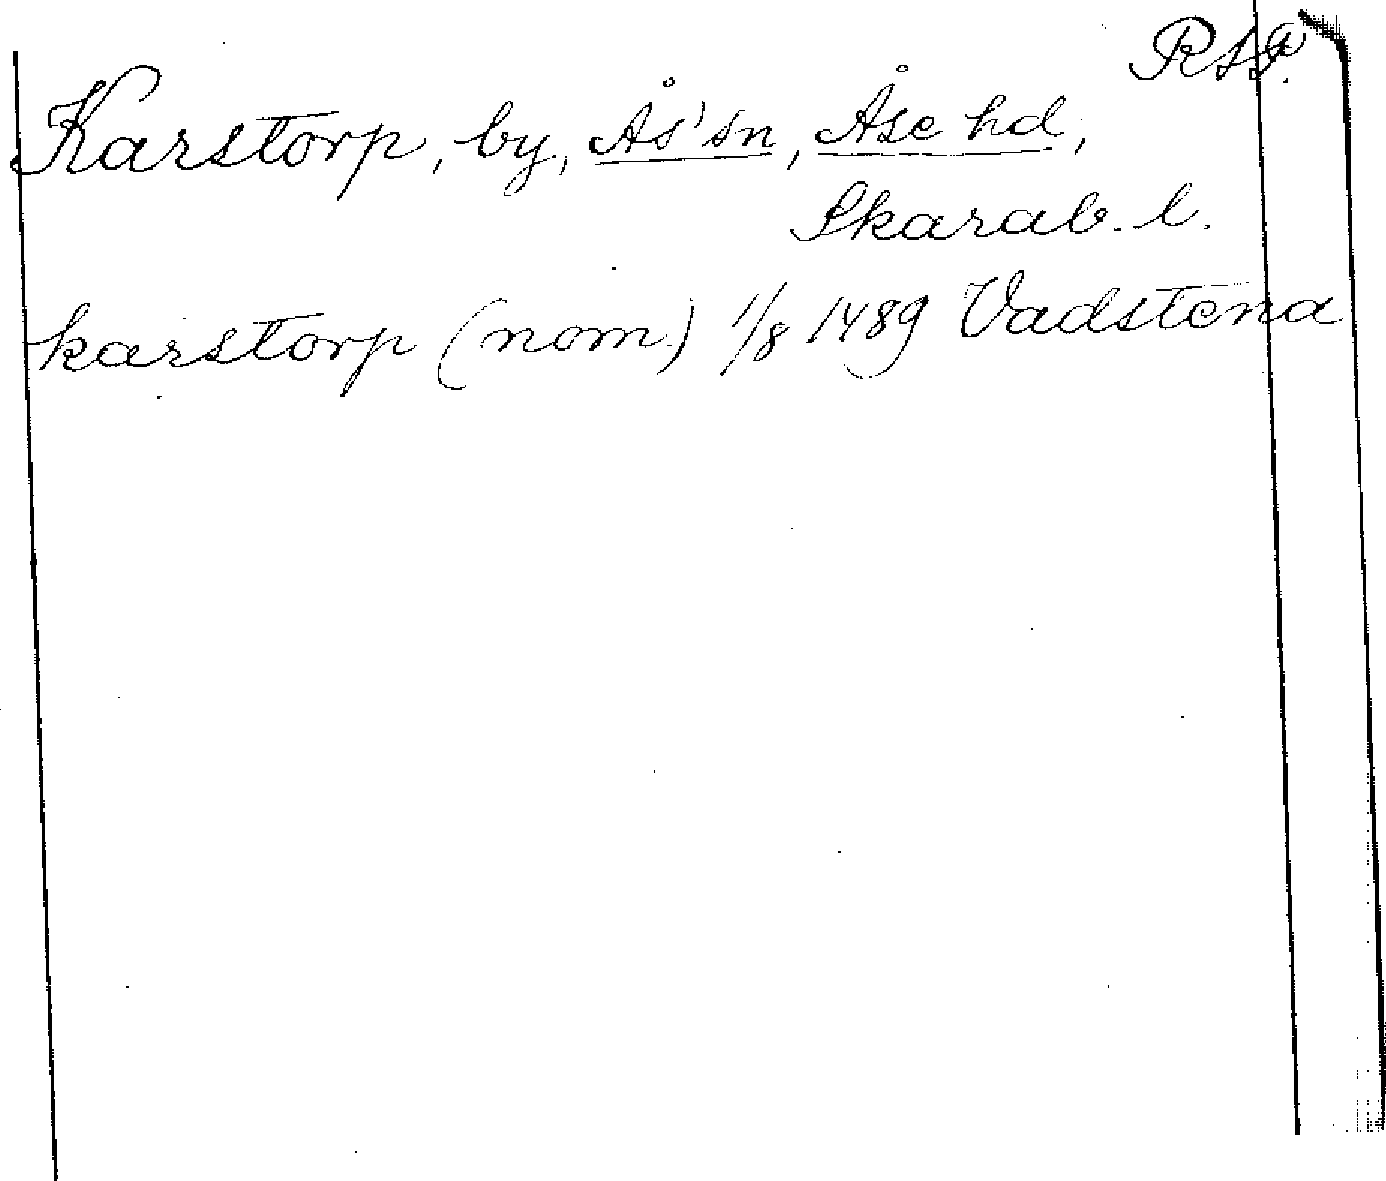 RAP.
Karstorp, by, Ås' sn, Åse hd,
Skarab. l.
karstorp (nom.) 1/8 1489 Vadstena